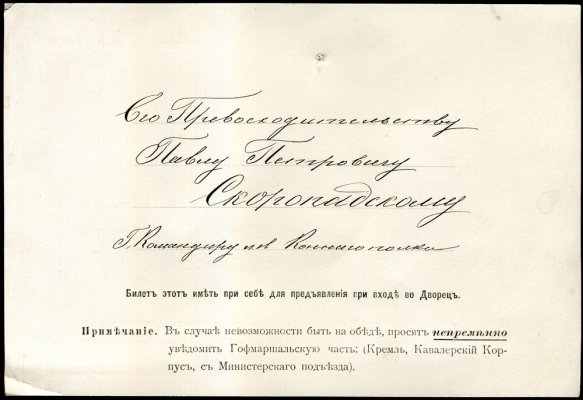 Его Превосходительству
Павлу Петровичу
Скоропадскому
Г. Командиру л.гв. Коннаго полка
Билетъ этотъ имѣть при себѣ для предъявленія при входѣ во Дворецъ.
Примѣчаніе. Въ случаѣ невозможности быть на обѣдѣ, просятъ непремѣнно
увѣдомить Гофмаршальскую часть: (Кремль, Кавалерскій Кор-
пусъ, съ Министерскаго подъѣзда).